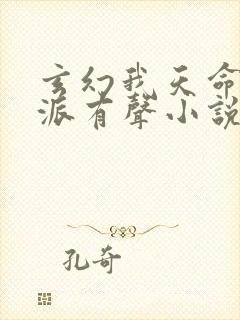 玄幻我天命
派有聲小說
孔奇